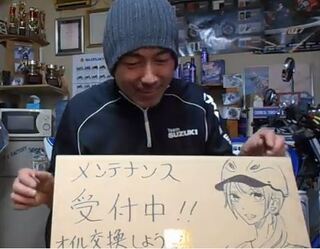 SUZUKI
Team
SUZUKI
メンテナンス
受付中!!
オイル交換しよう